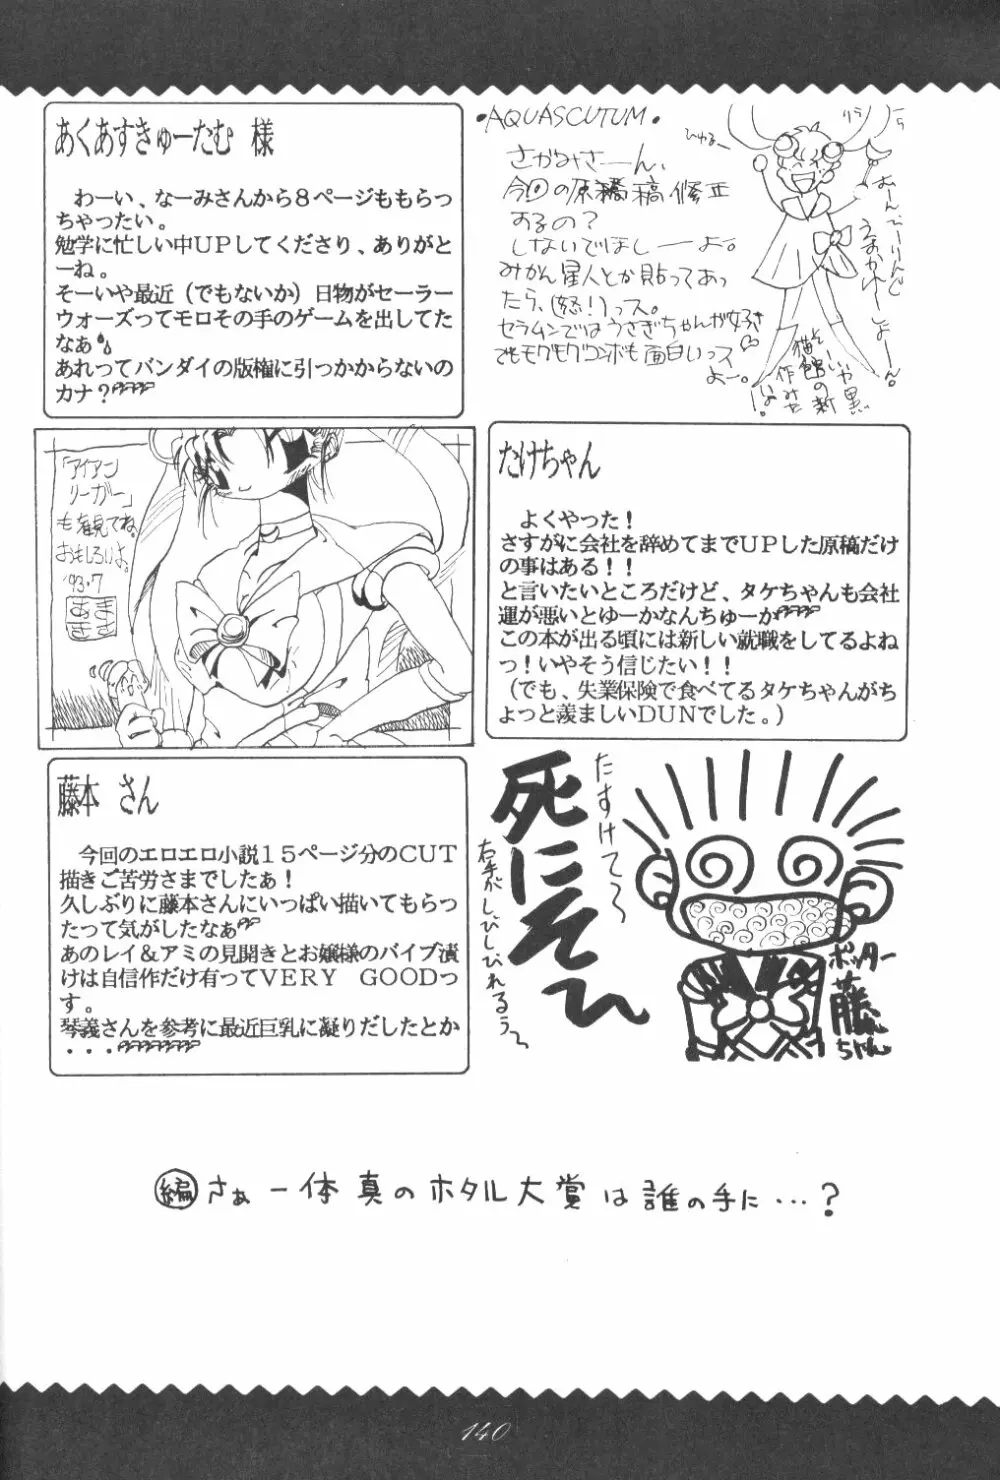 あくあすきゅーたむ 様
わーい、なーみさんから８ページももらっ
ちゃったい。
勉学に忙しい中ＵＰしてくださり、ありがと
ーね。
そーいや最近（でもないか）日物がセーラー
ウォーズってモロその手のゲームを出してた
なぁ
あれってバンダイの版権に引っかからないの
カナ？
•AQUASCUTUM•
さかみさーん、
今回の原稿稿修正
するの？
しないでほしーよ。
みかん星人とか貼ってあっ
たら、(怒！)っス。
セラムンではうさぎちゃんが好き
でもモグモグコンボも面白いっス
よー。
ひゅるー
むーんぴーりんぐ
うまかげーしょーん。
そーいや黒
猫館の新
作みた
い！
「アイアン
リーガー」
も観てね。
おもしろいよ。
'93・7
たけちゃん
よくやった！
さすがに会社を辞めてまでＵＰした原稿だけ
の事はある！！
と言いたいところだけど、タケちゃんも会社
運が悪いとゆーかなんちゅーか
この本が出る頃には新しい就職をしてるよね
っ！いやそう信じたい！！
（でも、失業保険で食べてるタケちゃんがち
ょっと羨ましいＤＵＮでした。）
藤本 さん
今回のエロエロ小説１５ページ分のＣＵＴ
描きご苦労さまでしたぁ！
久しぶりに藤本さんにいっぱい描いてもらっ
たって気がしたなぁ
あのレイ＆アミの見開きとお嬢様のバイブ漬
けは自信作だけ有ってＶＥＲＹ ＧＯＯＤっ
す。
琴義さんを参考に最近巨乳に凝りだしたとか
・・・
たすけて〜
死にそひ
右手がしびしびれるぅ〜
ポッター
藤
ちゃん
編 さぁ 一体 真の ホタル大賞 は 誰の手に…？
140